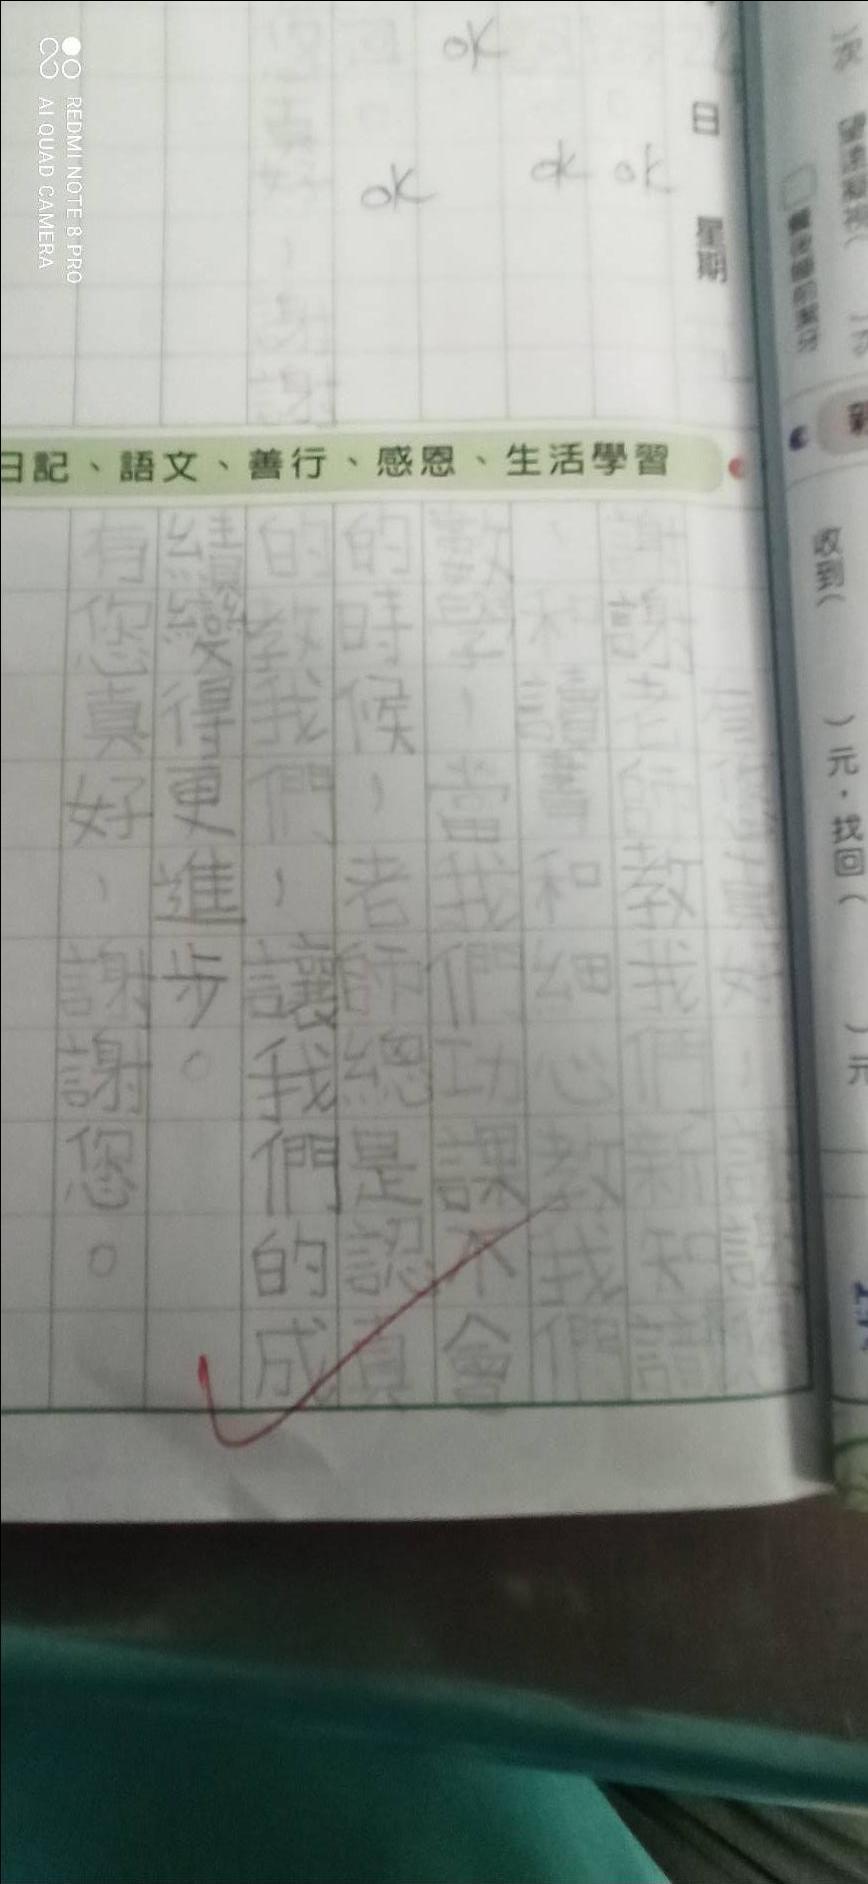 日 星期
ok
ok
ok
ok
日記、語文、善行、感恩、生活學習
有您真好，謝謝
謝謝老師教我們新知識
、和讀書和細心教我們
數學，當我們功課不會
的時候，老師總是認真
的教我們，讓我們的成
績變得更進步。
有您真好，謝謝您。
收到（ ）元，找回（ ）元
REDMI NOTE 8 PRO
AI QUAD CAMERA